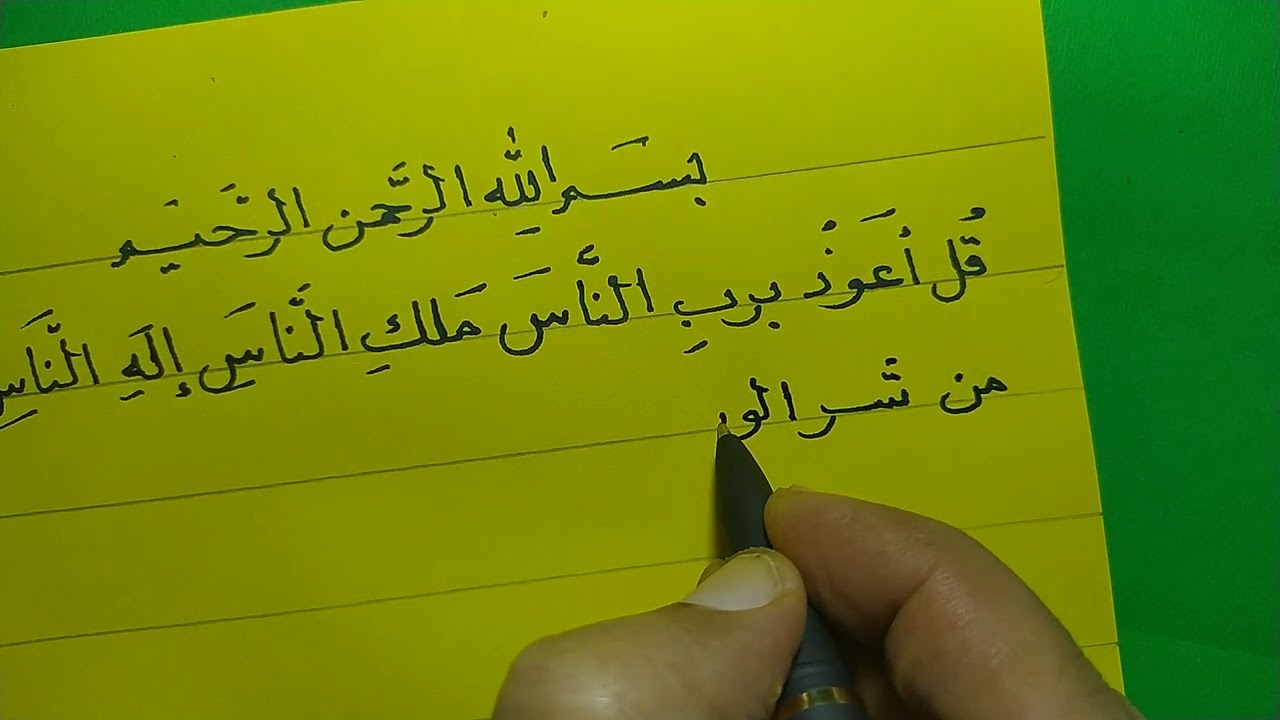 بسم اللهِ الرَّحمن الرَّحيم
قُل أَعَوذُ بربِ النَّاسَ مَلكِ النَّاسَِ إِلَهِ النَّاسِ
من شر الو